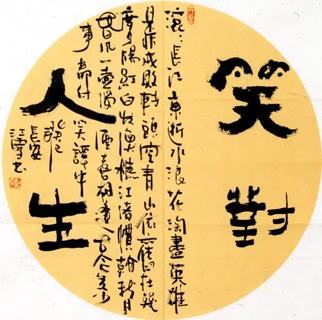 笑對
滚滚長江東逝水浪花淘盡英雄
是非成敗轉頭空青山依舊在幾
度夕陽紅白发漁樵江渚慣看秋月
春風一壺濁酒喜相逢古今多少
事都付笑談中
人生
癸巳
長安